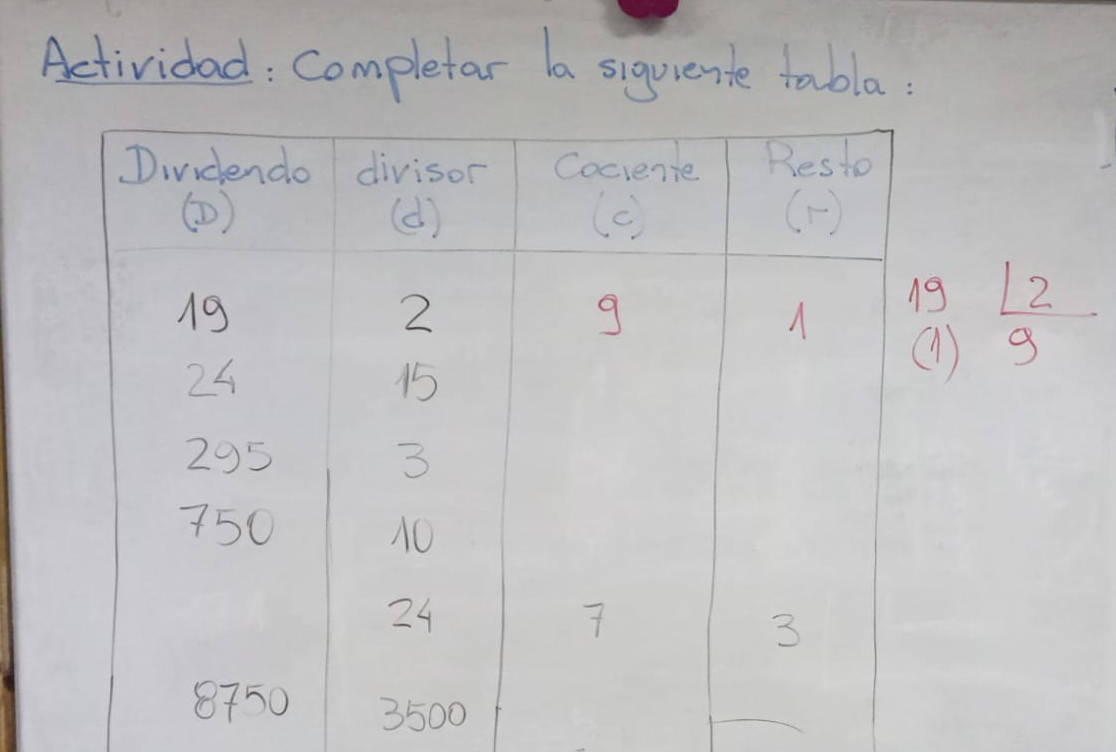 Actividad: Completar la siguiente tabla:
Dividendo divisor Cociente Resto
(D) (d) (c) (r)
19 2 9 1 19 2
(1) 9
24 15
295 3
750 10
24 7 3
8750 3500